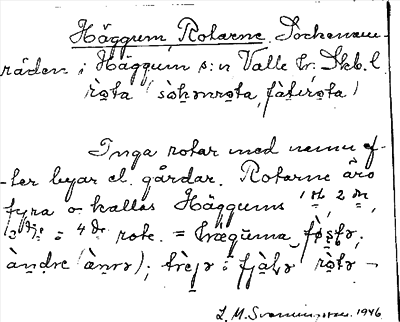 Häggum Rotarne. Sockennam-
råden i Häggum s:n Valle hr. Skb. l.
rota (sòkənrota, fàtirota)
Inga rotar med namn ef-
ter byar el. gårdar. Rotarne äro
fyra o. kallas Häggums 1st, 2dra,
3dje o. 4de rote. = hæguma føstə,
àndre (ànrə); trèjə o fjàlə ròtə
L. M. Svenningsson. 1946